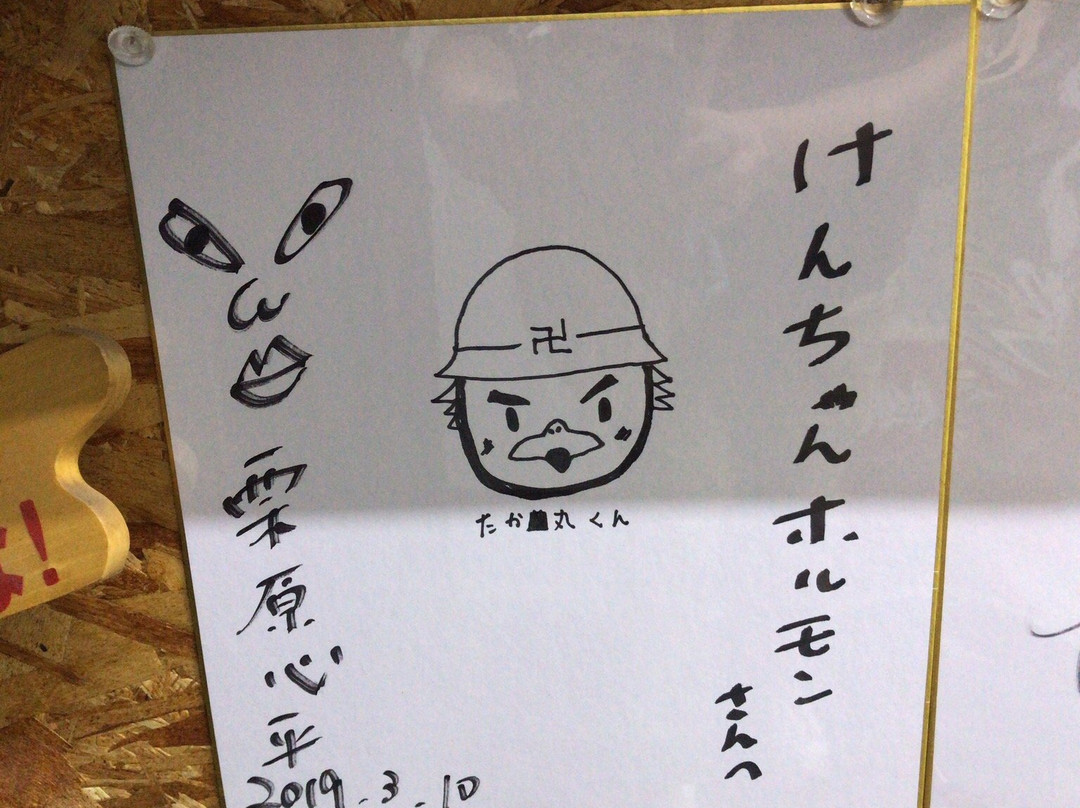 けんちゃんホルモン
さんへ
卍
たか丸くん
栗原心平
2019.3.10
!